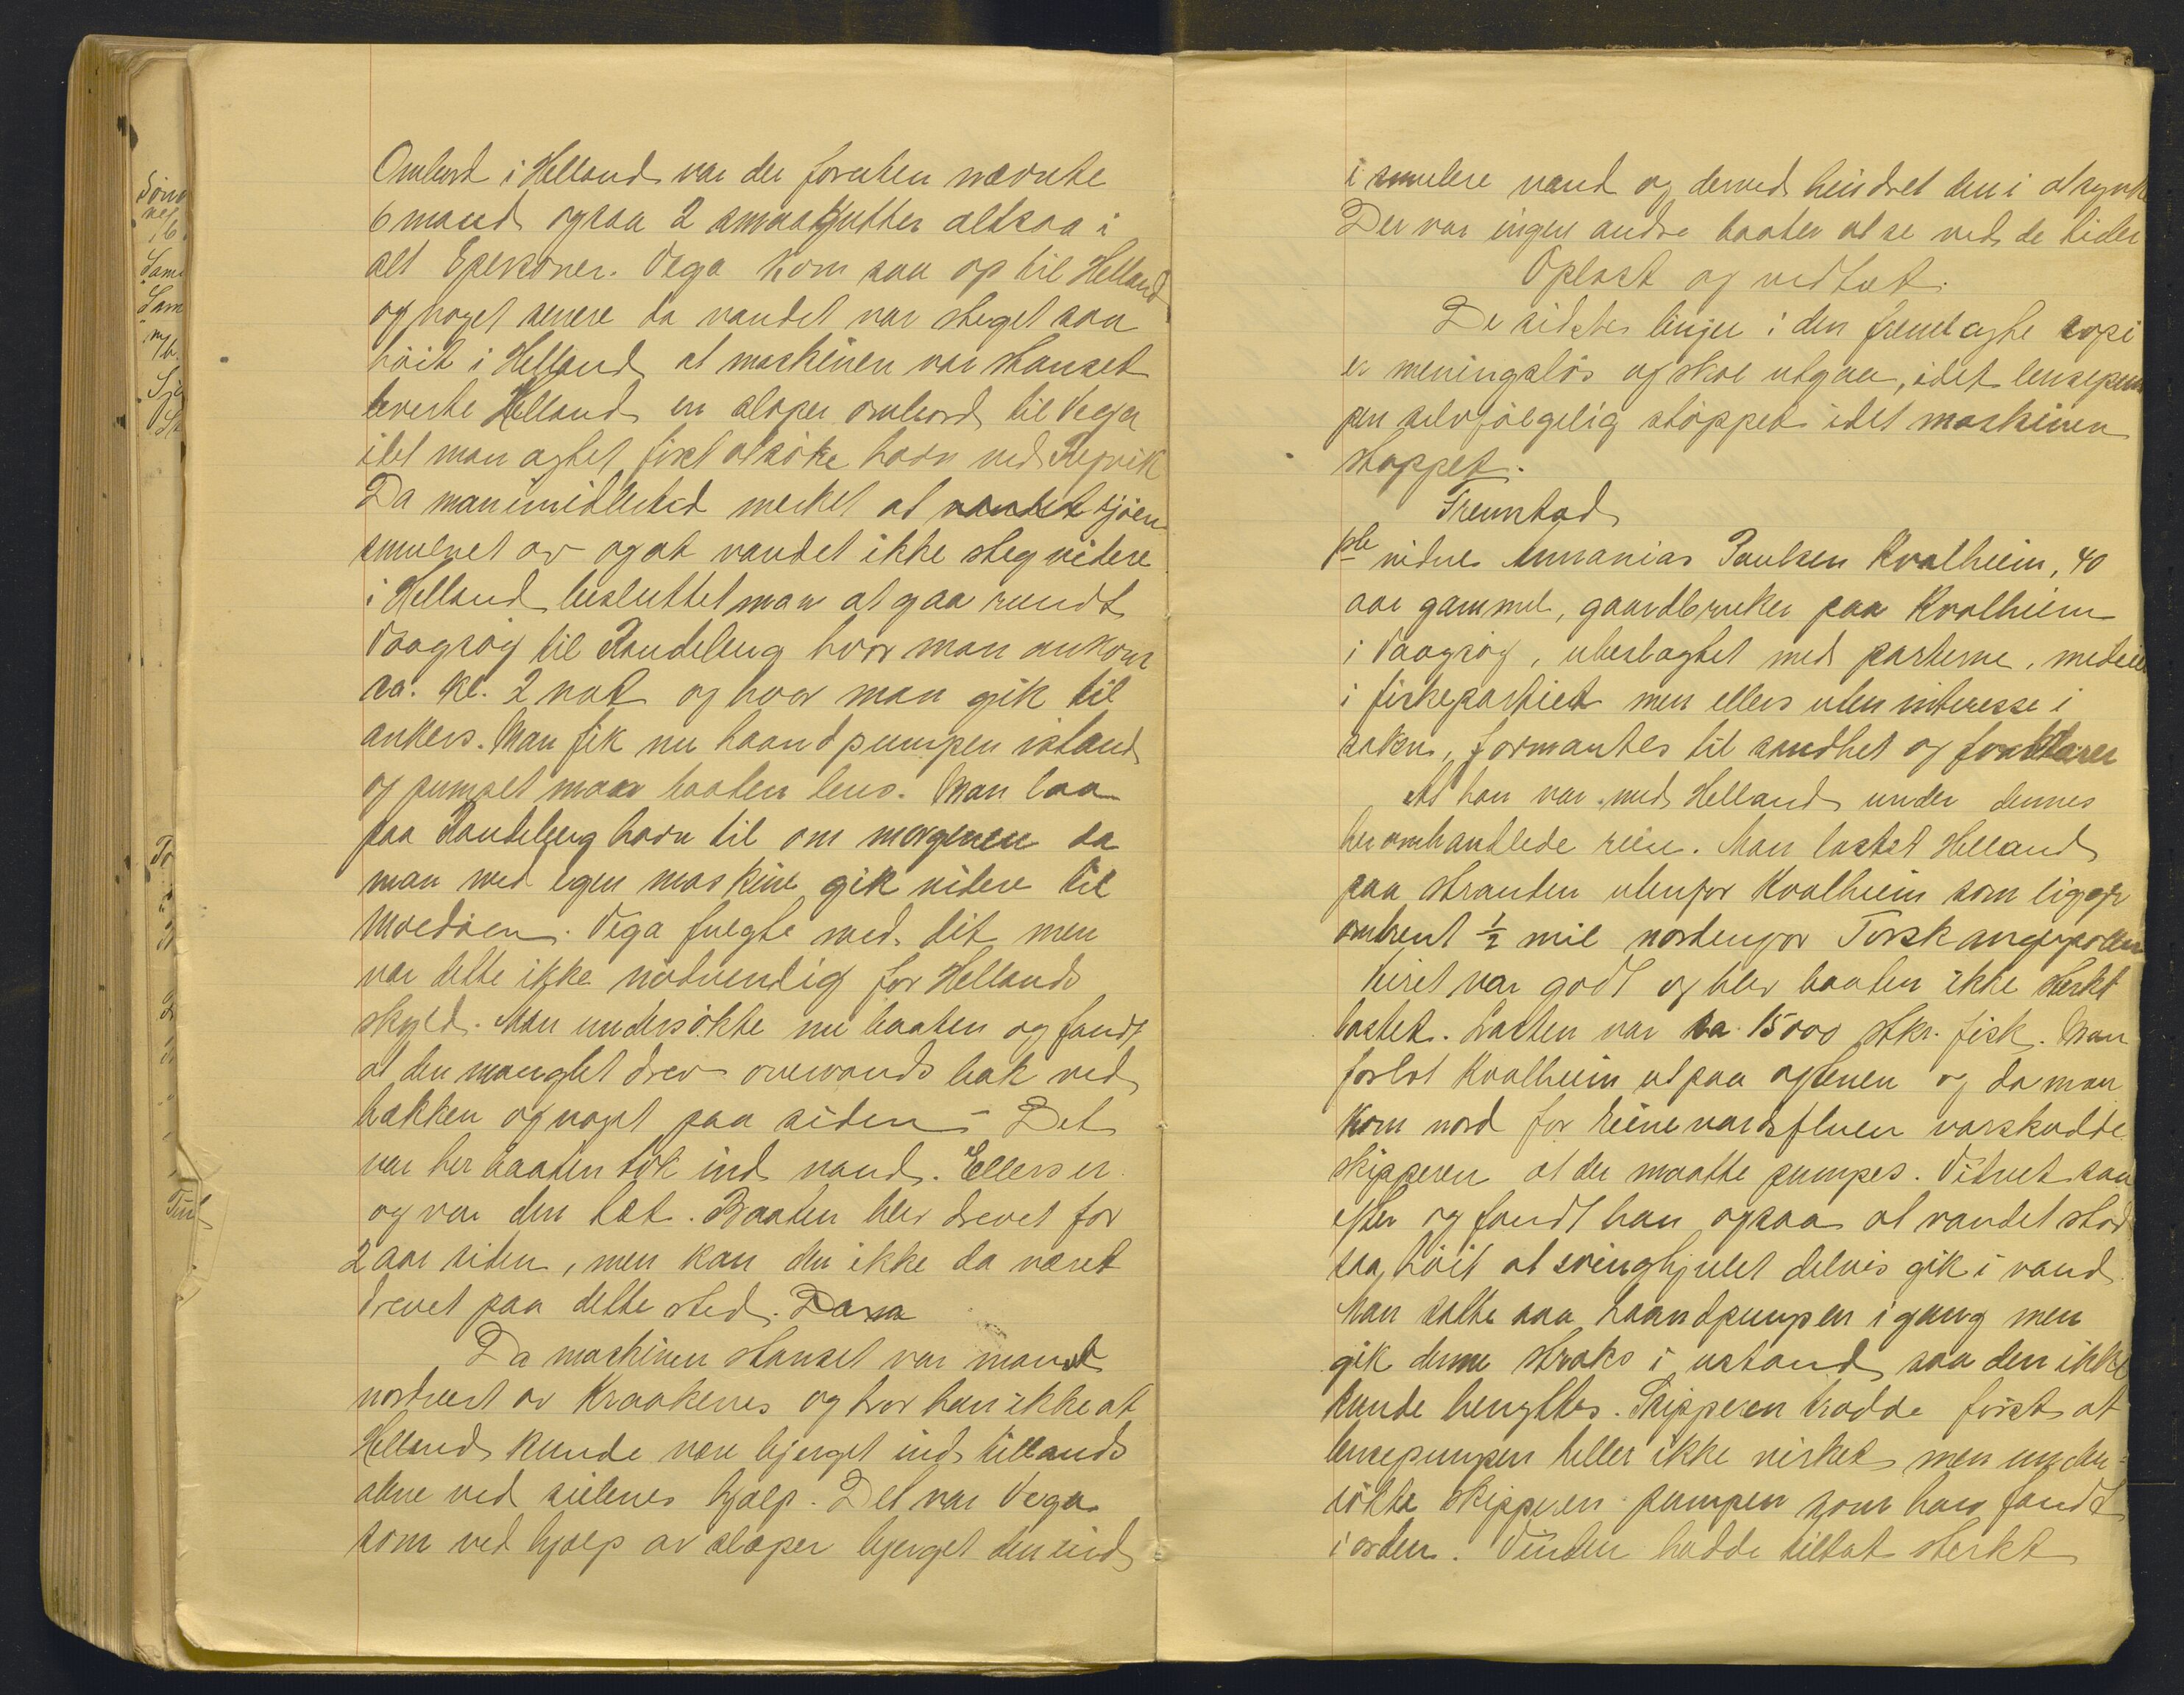 Ombord i Helland var der foruten nævnte
6 mand ogsaa 2 smaagutter altsaa i
alt 8 personer. Vega kom saa op til Helland
og noget senere da vandet var steget saa
höit i Helland at maskinen var stanset
leverte Helland en slæper ombord til Vega
idet man agtet först at söke havn ved Refvik
Da man imidlertid merket at vandet sjöen
smulnet av og at vandet ikke steg videre
i Helland besluttet man at gaa rundt
Vaagsöy til Raudeberg hvor man ankom
ca. kl. 2 nat og hvor man gik til
ankers. Man fik nu haandpumpen istand
og pumpet man baaten lens. Man laa
paa Raudeberg havn til om morgenen da
man med egen maskine gik videre til
Moldöen. Vega fulgte med dit men
var dette ikke nödvendig for Hellands
skyld. Man undersökte nu baaten og fandt
at den manglet drev ovenvands bak ved
hækken og noget paa siden - Det
var her baaten tok ind vand. Ellers er
og var den tæt. Baaten blev drevet for
2 aar siden, men kan den ikke da været
drevet paa dette sted.
Da maskinen stanset var man
nordvest av Kraakenes og tror han ikke at
Helland kunde være bjerget ind tillands
alene ved seilenes hjælp. Det var Vega
som ved hjælp av slæper bjerget den ind
i smulere vand og derved hindret den i at synke
Der var ingen andre baater at se ved de tider
Oplæst og vedtat.
De sidste linjer i den fremlagte kopi
er meningslös og skal utgaa, idet lensepum
pen selvfölgelig stoppet idet maskinen
stoppet.
Fremstod
vidne Annanias Paulsen Kvalheim, 40
aar gammel, gaardbruker paa Kvalheim
i Vaagsöy, ubeslagtet med parterne, medeier
i fiskepartiet men ellers uten interesse i
saken, formantes til sandhet og forklarer
At han var med Helland under dennes
her omhandlede reise. Man lastet Helland
paa stranden utenfor Kvalheim som ligger
omtrent ½ mil nordenfor Torskangerpollen
Veiret var godt og blev baaten ikke sterkt
lastet. Lasten var ca. 15000 stkr. fisk. Man
forlot Kvalheim ut paa aftenen og da man
kom nord for varskudde
skipperen at der maatte pumpes. Vidnet saa
efter og fandt han ogsaa at vandet stod
saa höit at svinghjulet delvis gik i vand.
Man satte saa haandpumpen igang men
gik denne straks i ustand saa den ikke
kunde benyttes. Skipperen trodde först at
lensepumpen heller ikke virket men under-
sökte skipperen pumpen som han fandt
i orden. Vinden hadde tiltat sterkt